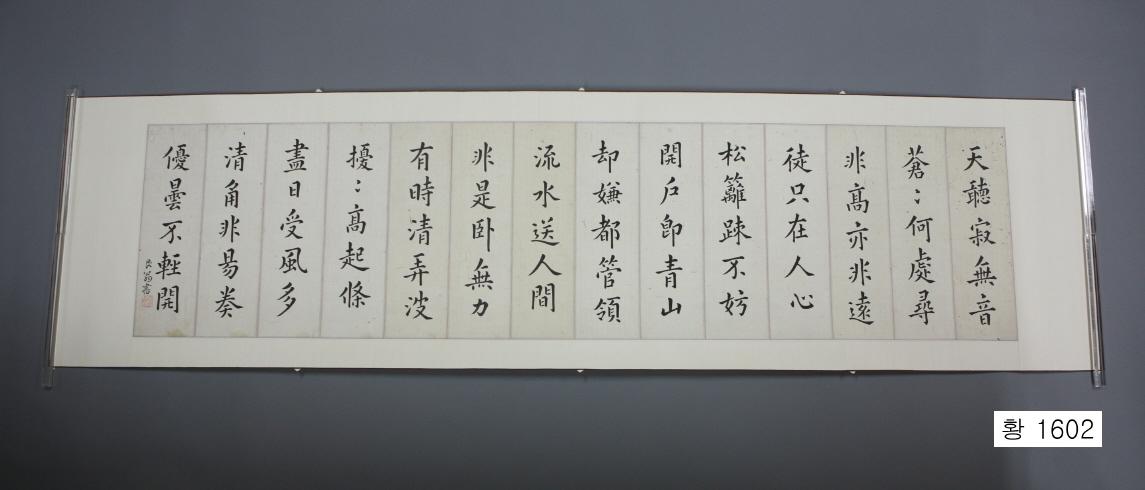 天聽寂無音
蒼〻何處尋
非高亦非遠
徒只在人心
松籬踈不妨
開戶卽青山
却嫌都管領
流水送人間
非是卧無力
有時清弄波
擾〻高起條
盡日受風多
清角非易奏
優曇不輕開
황 1602